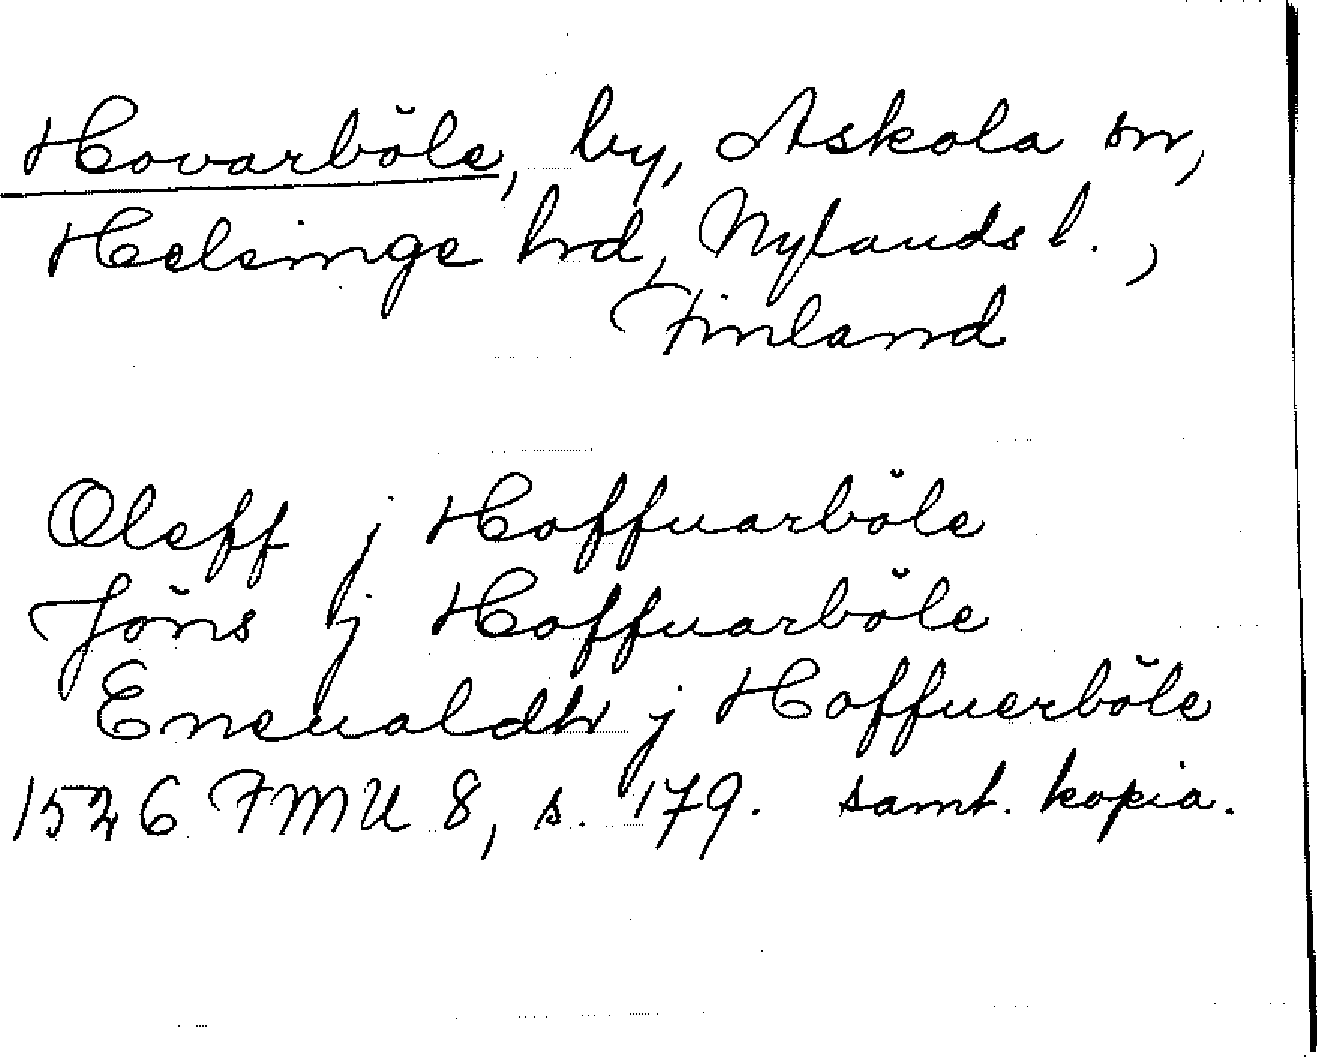 Hovarböle, by, Askola sn,
Helsinge hrd, Nylands l.,
Finland
Oleff j Hoffuarböle
Jöns j Hoffuarböle
Eneualdh j Hoffuerböle
1526 FMU 8, s. 179. samt. kopia.